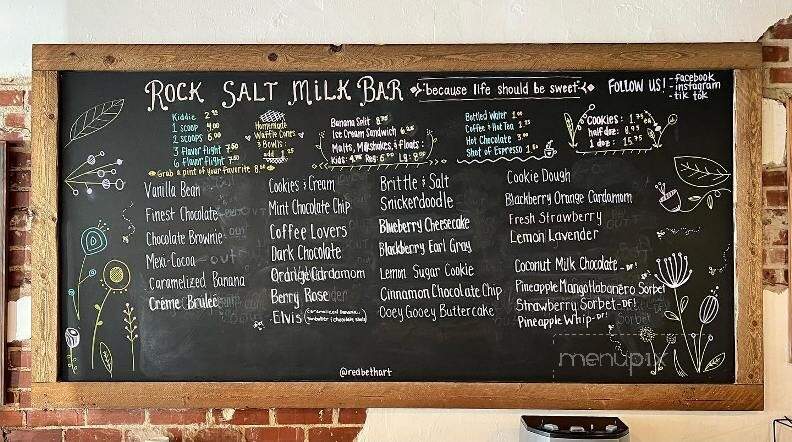 ROCK SALT MILK BAR
because life should be sweet
FOLLOW US!
- facebook
- instagram
- tik tok
Kiddie
1 scoop 4.00
2 scoops
3 flavor flight 7.50
6 flavor flight
Grab a pint of your favorite
Homemade
Waffle Cones
& Bowls:
add
Banana Split
Ice Cream Sandwich 6.25
Malts, Milkshakes, & Floats:
Kids: Reg: Lg:
Bottled Water 1.00
Coffee & Hot Tea
Hot Chocolate 3.00
Shot of Espresso
Cookies: 1.75
half dz: 8.95
1 doz: 15.75
Vanilla Bean
Finest Chocolate
Chocolate Brownie
Mexi-Cocoa
Caramelized Banana
Crème Brulee
Cookies & Cream
Mint Chocolate Chip
Coffee Lovers
Dark Chocolate
Cardamom
Berry Rose
Elvis (caramelized banana,
Brittle & Salt
Snickerdoodle
Blueberry Cheesecake
Blackberry Earl Gray
Lemon Sugar Cookie
Cinnamon Chocolate Chip
Ooey Gooey Buttercake
Cookie Dough
Blackberry Orange Cardamom
Fresh Strawberry
Lemon Lavender
Coconut Milk Chocolate -DF!
Pineapple Mango Habanero Sorbet
Strawberry Sorbet-DF!
Pineapple Whip-DF!
@redbethart
menupix